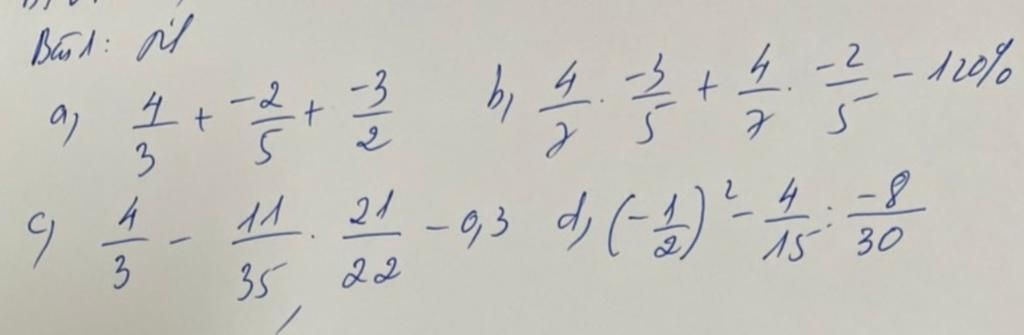 Bài 1:
a, 4/3 + -2/5 + -3/2 b, 4/7 . -3/5 + 4/7 . -2/5 - 120%
c, 4/3 - 11/35 . 21/22 - 0,3 d, (-1/2)² - 4/15 : -8/30